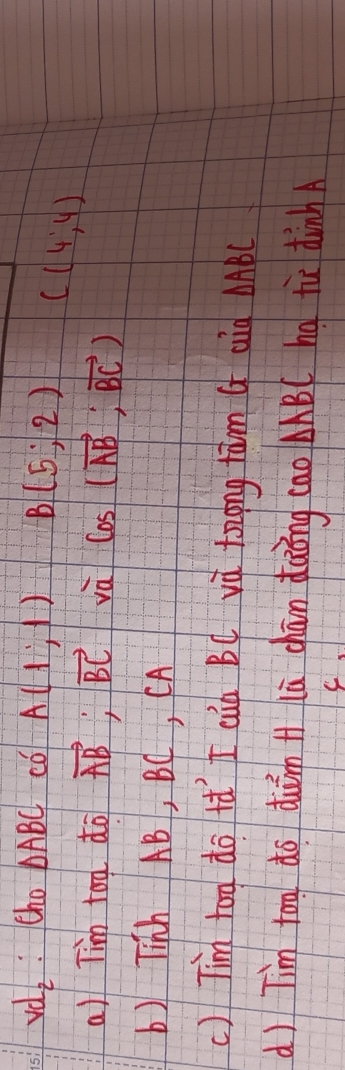 vd₂ : Cho ΔABC có A(1;1) B(5;2) C(4;4)
a) Tìm toạ độ \overrightarrow{AB} ; \overrightarrow{BC} và Cos (\overrightarrow{AB} ; \overrightarrow{BC})
b) Tính AB, BC, CA
c) Tìm toạ độ tđ' I của BC và trọng tâm G của ΔABC
d) Tìm toạ độ điểm H là chân đường cao ΔABC hạ từ đỉnh A
15